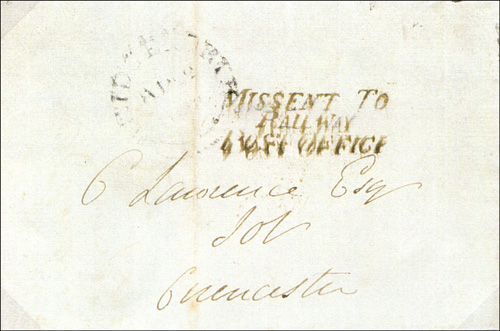 MISSENT TO
RAILWAY
POST OFFICE
C Lawrence Esq
Sol
Cirencester